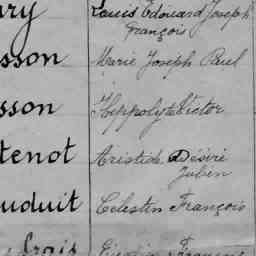 Louis Edouard Joseph
François
sson Marie Joseph Paul
sson Hippolyte Victor
tenot Aristide Désiré
Julien
uduit Celestin François